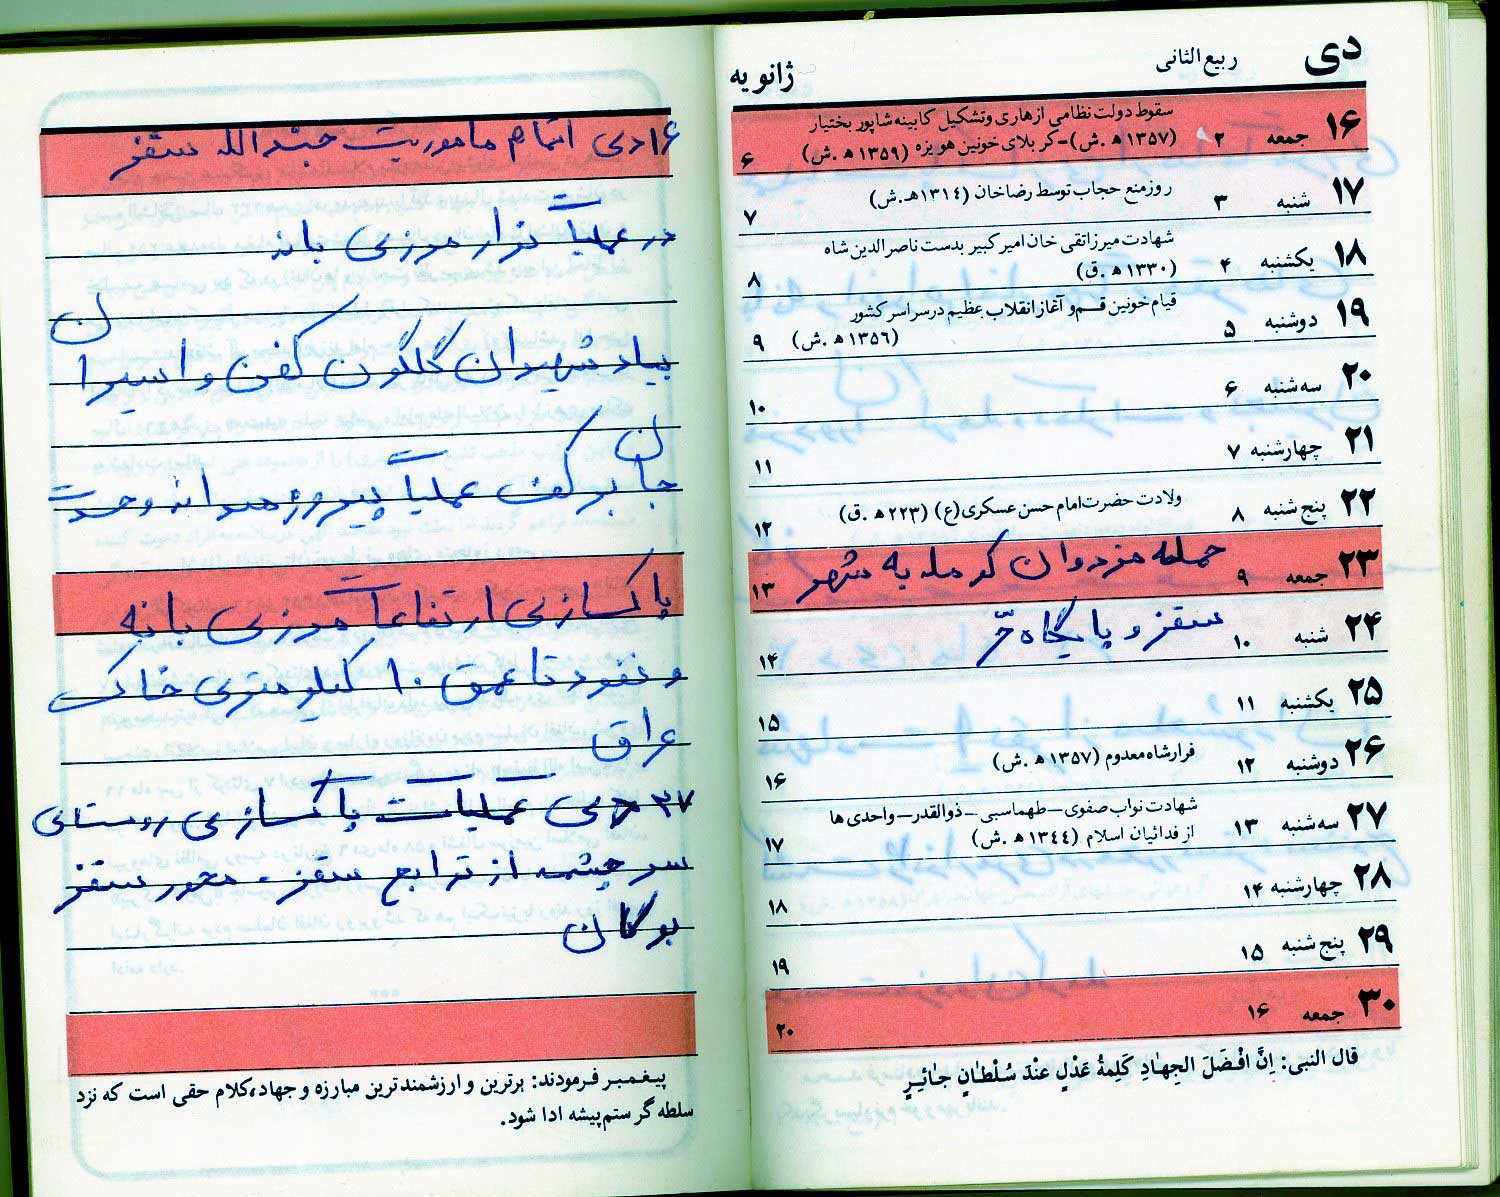 دی ربیع الثانی ژانویه
۱۶ جمعه ۲ سقوط دولت نظامی ازهاری وتشکیل کابینه شاپور بختیار
(۱۳۵۷ ه‍ .ش)-کربلای خونین هویزه (۱۳۵۹ ه‍ .ش) ۶
۱۷ شنبه ۳ روزمنع حجاب توسط رضاخان (۱۳۱۴ ه‍ .ش) ۷
۱۸ یکشنبه ۴ شهادت میرزاتقی خان امیرکبیر بدست ناصرالدین شاه
(۱۳۳۰ ه‍ .ق) ۸
۱۹ دوشنبه ۵ قیام خونین قم و آغاز انقلاب عظیم درسراسر کشور
(۱۳۵۶ ه‍ .ش) ۹
۲۰ سه شنبه ۶ ۱۰
۲۱ چهارشنبه ۷ ۱۱
۲۲ پنج شنبه ۸ ولادت حضرت امام حسن عسکری (ع) (۲۲۳ ه‍ .ق) ۱۲
۲۳ جمعه ۹ حمله مزدوران کومله به شهر ۱۳
۲۴ شنبه ۱۰ سقز و پایگاه حّر ۱۴
۲۵ یکشنبه ۱۱ ۱۵
۲۶ دوشنبه ۱۲ فرارشاه معدوم (۱۳۵۷ ه‍ .ش) ۱۶
۲۷ سه شنبه ۱۳ شهادت نواب صفوی - طهماسبی - ذوالقدر - واحدی ها
از فدائیان اسلام (۱۳۴۴ ه‍ .ش) ۱۷
۲۸ چهارشنبه ۱۴ ۱۸
۲۹ پنج شنبه ۱۵ ۱۹
۳۰ جمعه ۱۶ ۲۰
قال النبی: اِنَّ اَفْضَلَ الجِهٰادِ کَلِمَةُ عَدْلٍ عِنْدَ سُلْطٰانٍ جٰائِرٍ
۱۶ دی اتمام ماموریت جندالله سقز
در عملیات نوار مرزی بانه
بیاد شهیدان گلگون کفن و اسیران
جان برکف عملیات پیروزمندانه وحدت
پاکسازی ارتفاعات مرزی بانه
و نفوذ تا عمق ۱۰ کیلومتری خاک
عراق
۲۷ دی عملیات پاکسازی روستای
سرچشمه از توابع سقز - محور سقز
بوکان
پیغمبر فرمودند: برترین و ارزشمندترین مبارزه و جهاد، کلام حقی است که نزد
سلطه گر ستم پیشه ادا شود.